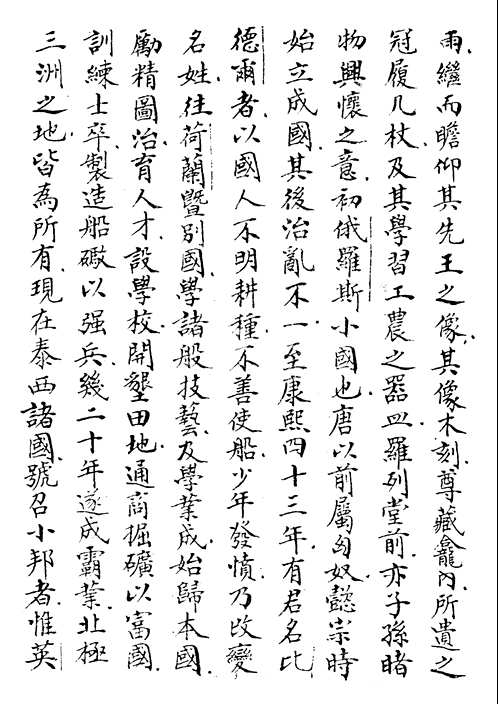 雨繼而瞻仰其先王之像其像木刻尊藏龕內所遺之
冠履几杖及其學習工農之器皿羅列堂前亦子孫睹
物興懷之意初俄羅斯小國也唐以前屬匈奴懿宗時
始立成國其後治亂不一至康熙四十三年有君名比
德爾者以國人不明耕種不善使船少年發憤乃改變
名姓往荷蘭暨別國學諸般技藝及學業成始歸本國
勵精圖治育人才設學校開墾田地通商掘礦以富國
訓練士卒製造船礮以强兵幾二十年遂成霸業北極
三洲之地皆為所有現在泰西諸國號召小邦者惟英